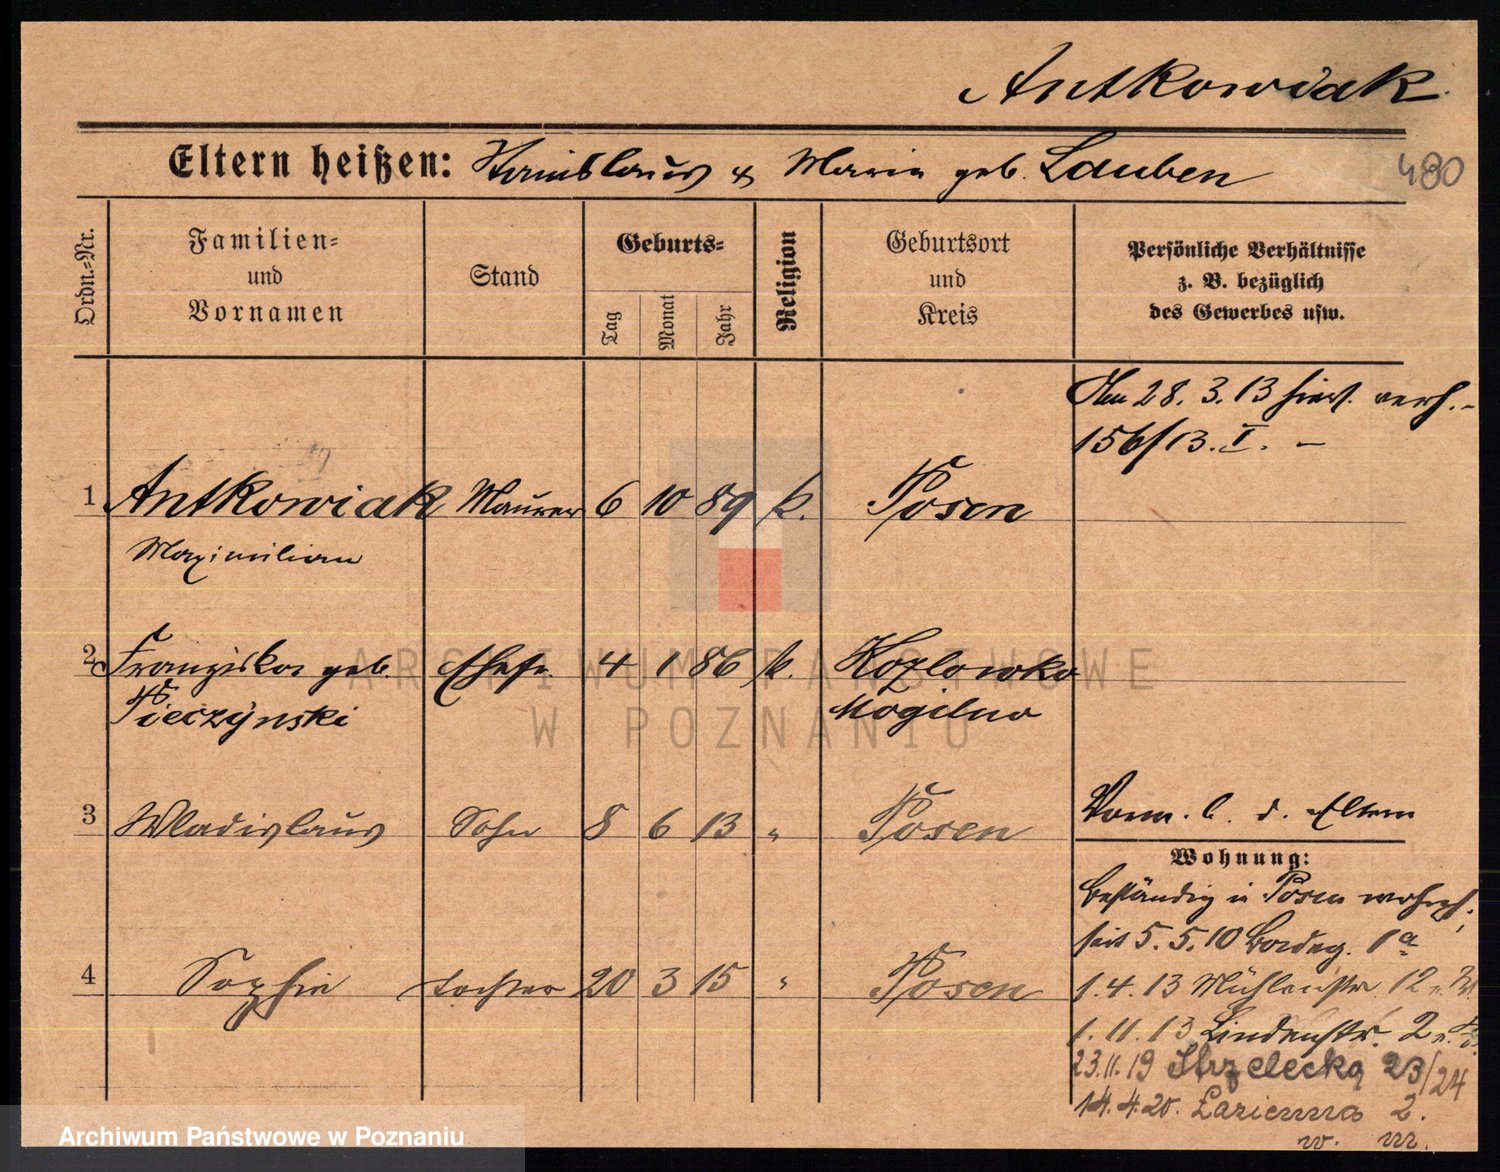 Antkowiak.
Eltern heißen: Stanislaus & Maria geb. Lauben
480
Ordn.-Nr.
Familien-
und
Vornamen
Stand
Geburts-
Tag
Monat
Jahr
Religion
Geburtsort
und
Kreis
Persönliche Verhältnisse
z. B. bezüglich
des Gewerbes usw.
Am 28. 3. 13 hier verh. -
156/13. I. -
1 Antkowiak Maurer 6 10 89 k. Posen
Maximilian
2 Franziska geb. Ehefr. 4 1 86 k. Kozlowko
Pieczynski Mogilno
3 Wladislaus Sohn 8 6 13 " Posen
Vorm. b. d. Eltern
Wohnung:
beständig in Posen wohnh.
seit 5. 5. 10 1a
4 Sophie Tochter 20 3 15 " Posen
1. 4. 13 Mühlenstr. 12
1. 11. 13 Lindenstr. 2
23.11.19 Strzelecka 23/24
14. 4. 20. Łazienna 2.
w. m.
ARCHIWUM PAŃSTWOWE
W POZNANIU
Archiwum Państwowe w Poznaniu